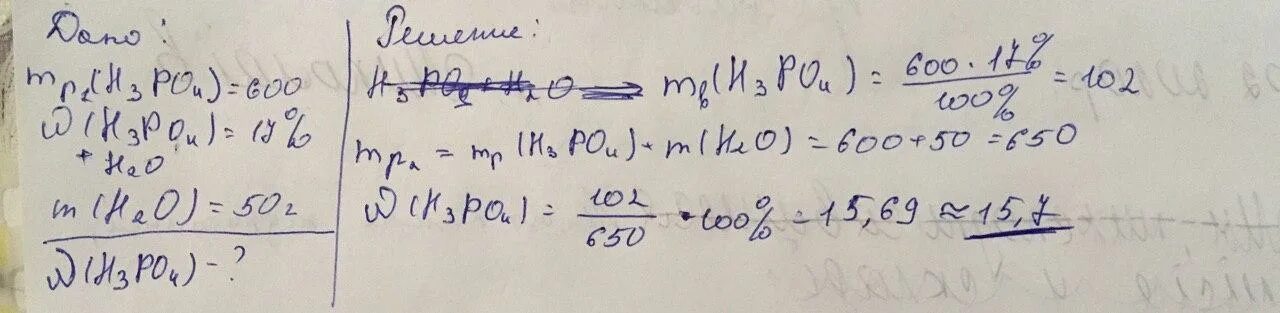 Дано:
m р₁(H₃PO₄) = 600
ω(H₃PO₄) = 17%
+ H₂O
m(H₂O) = 50г
ω(H₃PO₄) - ?
Решение:
m в(H₃PO₄) = 600 · 17% / 100% = 102
m р₂ = m р(H₃PO₄) + m(H₂O) = 600 + 50 = 650
ω(H₃PO₄) = 102 / 650 · 100% = 15,69 ≈ 15,7